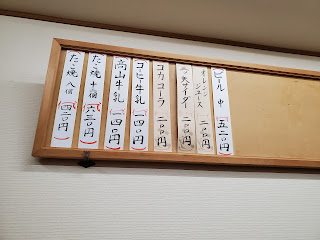 ビール 中 五二〇円
オレンジジュース 二〇〇円
サイダー 二〇〇円
コカコーラ 二〇〇円
コーヒ牛乳 一四〇円
高山牛乳 一四〇円
たこ焼 十個 六三〇円
たこ焼 八個 四二〇円